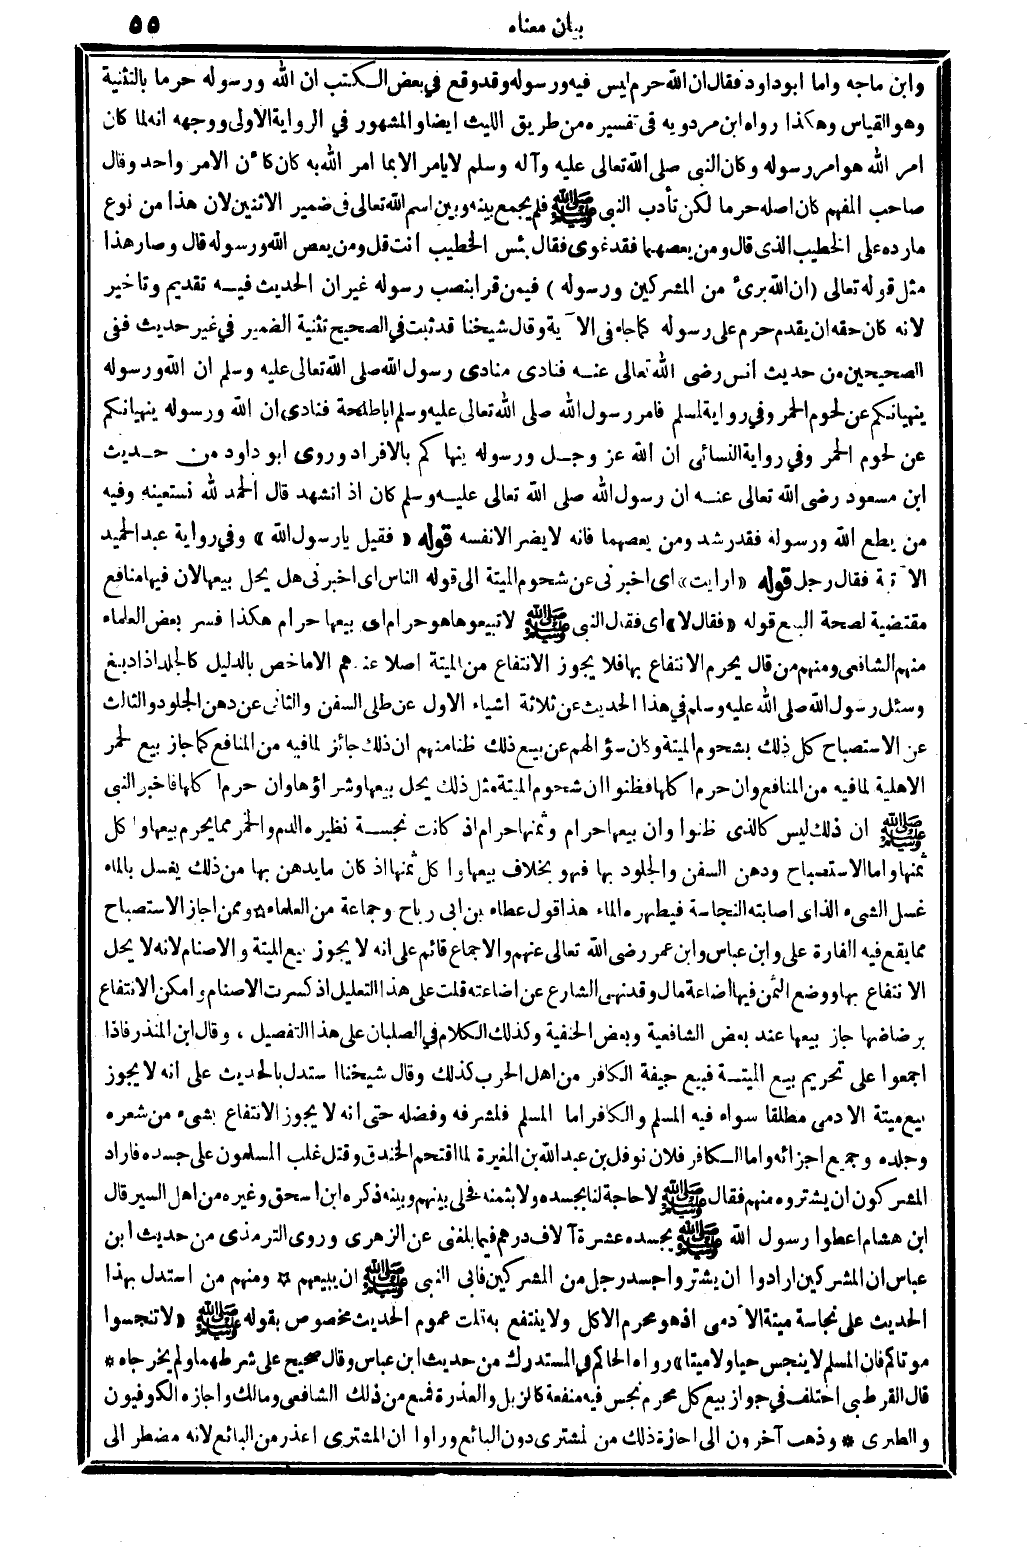 بيان معناه ٥٥
وابن ماجه واما ابوداود فقال ان الله حرم ليس فيه ورسوله وقدوقع في بعض الكتب ان الله ورسوله حرما بالتثنية
وهو القياس وهكذا رواه ابن مردويه فى تفسيره من طريق الليث ايضا والمشهور في الرواية الاولى ووجهه انه لما كان
امر الله هو امر رسوله وكان النبى صلى الله تعالى عليه وآله وسلم لا يامر الا بما امر الله به كان كا ن الامر واحد وقال
صاحب المفهم كان اصله حرما لكن تأدب النبى ﷺ فلم يجمع بينه وبين اسم الله تعالى فى ضمير الاثنين لان هذا من نوع
مارده على الخطيب الذى قال ومن يعصهما فقد غوى فقال بئس الخطيب انت قل ومن يعص الله ورسوله قال وصار هذا
مثل قوله تعالى (ان الله برئ من المشركين ورسوله) فيمن قرا بنصب رسوله غير ان الحديث فيه تقديم وتاخير
لانه كان حقه ان يقدم حرم على رسوله كما جاء فى الآية وقال شيخنا قد ثبت في الصحيح تثنية الضمير في غير حديث ففى
الصحيحين من حديث انس رضى الله تعالى عنه فنادى منادى رسول الله صلى الله تعالى عليه وسلم ان الله ورسوله
ينهيانكم عن لحوم الحمر وفي رواية لمسلم فامر رسول الله صلى الله تعالى عليه وسلم اباطلحة فنادى ان الله ورسوله ينهيانكم
عن لحوم الحمر وفي رواية النسائى ان الله عز وجل ورسوله ينهاكم بالافراد وروى ابو داود من حديث
ابن مسعود رضى الله تعالى عنه ان رسول الله صلى الله تعالى عليه وسلم كان اذ انشهد قال الحمد لله نستعينه وفيه
من يطع الله ورسوله فقد رشد ومن يعصهما فانه لا يضر الا نفسه قوله «فقيل يارسول الله» وفي رواية عبد الحميد
الآتية فقال رجل قوله «ارايت» اى اخبرنى عن شحوم الميتة الى قوله الناس اى اخبرنى هل يحل بيعها لان فيها منافع
مقتضية لصحة البيع قوله «فقال لا» اى فقال النبى ﷺ لا تبيعوها هو حرام اى بيعها حرام هكذا فسر بعض العلماء
منهم الشافعى ومنهم من قال يحرم الانتفاع بها فلا يجوز الانتفاع من الميتة اصلا عندهم الا ماخص بالدليل كالجلد اذا دبغ
وسئل رسول الله صلى الله عليه وسلم في هذا الحديث عن ثلاثة اشياء الاول عن طلى السفن والثانى عن دهن الجلود والثالث
عن الاستصباح كل ذلك بشحوم الميتة وكان سؤالهم عن بيع ذلك ظنا منهم ان ذلك جائز لما فيه من المنافع كما جاز بيع لحمر
الاهلية لما فيه من المنافع وان حرم اكلها فظنوا ان شحوم الميتة مثل ذلك يحل بيعها وشراؤها وان حرم اكلها فاخبر النبى
ﷺ ان ذلك ليس كالذى ظنوا وان بيعها حرام وثمنها حرام اذ كانت نجسة نظيره الدم والخمر مما يحرم بيعها واكل
ثمنها واما الاستصباح ودهن السفن والجلود بها فهو بخلاف بيعها واكل ثمنها اذ كان ما يدهن بها من ذلك يغسل بالماء
غسل الشىء الذى اصابته النجاسة فيطهره الماء هذا قول عطاء بن ابى رباح وجماعة من العلماء ☆ وممن اجاز الاستصباح
مما يقع فيه الفارة على وابن عباس وابن عمر رضى الله تعالى عنهم والاجماع قائم على انه لا يجوز بيع الميتة والاصنام لانه لا يحل
الانتفاع بها ووضع الثمن فيها اضاعة مال وقد نهى الشارع عن اضاعته قلت على هذا التعليل اذ كسرت الاصنام وامكن الانتفاع
برضاضها جاز بيعها عند بعض الشافعية وبعض الحنفية وكذلك الكلام في الصلبان على هذا التفصيل ، وقال ابن المنذر فاذا
اجمعوا على تحريم بيع الميتة فبيع جيفة الكافر من اهل الحرب كذلك وقال شيخنا استدل بالحديث على انه لا يجوز
بيع ميتة الادمى مطلقا سواء فيه المسلم والكافر اما المسلم فلشرفه وفضله حتى انه لا يجوز الانتفاع بشىء من شعره
وجلده وجميع اجزائه واما الكافر فلان نوفل بن عبد الله بن المغيرة لما اقتحم الخندق وقتل غلب المسلمون على جسده فاراد
المشركون ان يشتروه منهم فقال ﷺ لا حاجة لنا بجسده ولا بثمنه فخلى بينهم وبينه ذكره ابن اسحق وغيره من اهل السير قال
ابن هشام اعطوا رسول الله ﷺ بجسده عشرة آلاف درهم فيما بلغنى عن الزهرى وروى الترمذى من حديث ابن
عباس ان المشركين ارادوا ان يشتروا جسد رجل من المشركين فابى النبى ﷺ ان يبيعهم ☆ ومنهم من استدل بهذا
الحديث على نجاسة ميتة الآدمى اذ هو محرم الاكل ولا ينتفع به قلت عموم الحديث مخصوص بقوله ﷺ «لا تنجسوا
موتاكم فان المسلم لا ينجس حيا ولا ميتا» رواه الحاكم في المستدرك من حديث ابن عباس وقال صحيح على شرطهما ولم يخرجاه *
قال القرطبى اختلف في جواز بيع كل محرم نجس فيه منفعة كالزبل والعذرة فمنع من ذلك الشافعى ومالك واجازه الكوفيون
والطبرى * وذهب آخرون الى اجازة ذلك من المشترى دون البائع وراوا ان المشترى اعذر من البائع لانه مضطر الى